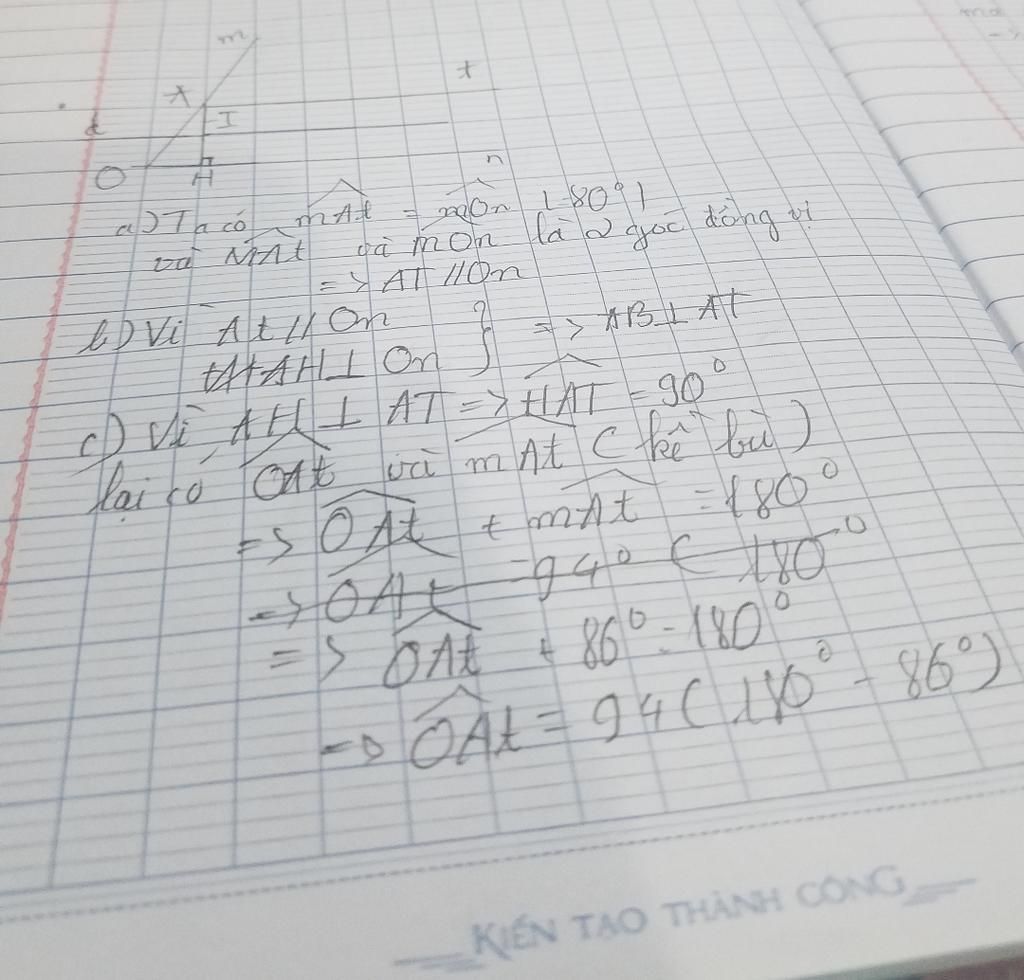 m
t
A
I
d
O
H
n
a) Ta có mAt = mOn (=80°)
và MAt và mOn là 2 góc đồng vị
=> AT // On
b) Vì At // On
AH ⊥ On } => AB ⊥ At
c) Vì AH ⊥ AT => HAT = 90°
lại có OAt và mAt (kề bù)
=> OAt + mAt = 180°
=> OAt = 94° ( 180°
=> OAt + 86° = 180°
=> OAt = 94 (180° - 86°)
KIẾN TẠO THÀNH CÔNG